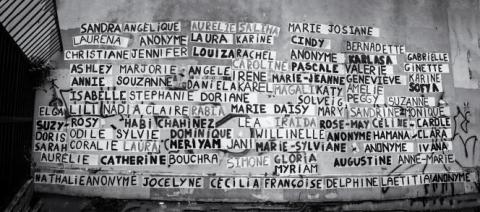 SANDRA ANGÉLIQUE AURELIE SALINA MARIE JOSIANE
LAURENA ANONYME LAURA KARINE CINDY BERNADETTE
CHRISTIANE JENNIFER LOUIZA RACHEL ANONYME KARLASA GABRIELLE
ASHLEY MARJORIE ANGELE CAROLINE PASCALE VALERIE GINETTE
ANNIE SOUZANNE IRENE MARIE-JEANNE GENEVIEVE KARINE
DANIELA KAREL MAGALI KATY AMELIE SOFYA
ISABELLE STEPHANIE DORIANE SOLVEIG PEGGY SUZANNE
LILI NADIA CLAIRE FABIA MARIE DAISY MARY SANDRINE MONIQUE
ROSY HABI CHAHINEZ LEA IRAIDA ROSE-MAY CECILE CAROLE
DORIS ODILE SYLVIE DOMINIQUE WILLINELLE ANONYME HAMANA CLARA
SARAH CORALIE LAURA CHERIYAM JANI MARIE-SYLVIANE ANONYME IVANA
AURÉLIE CATHERINE BOUCHRA SIMONE GLORIA AUGUSTINE ANNE-MARIE
MYRIAM
NATHALIE ANONYME JOCELYNE CECILIA FRANÇOISE DELPHINE LAETITIA ANONYME